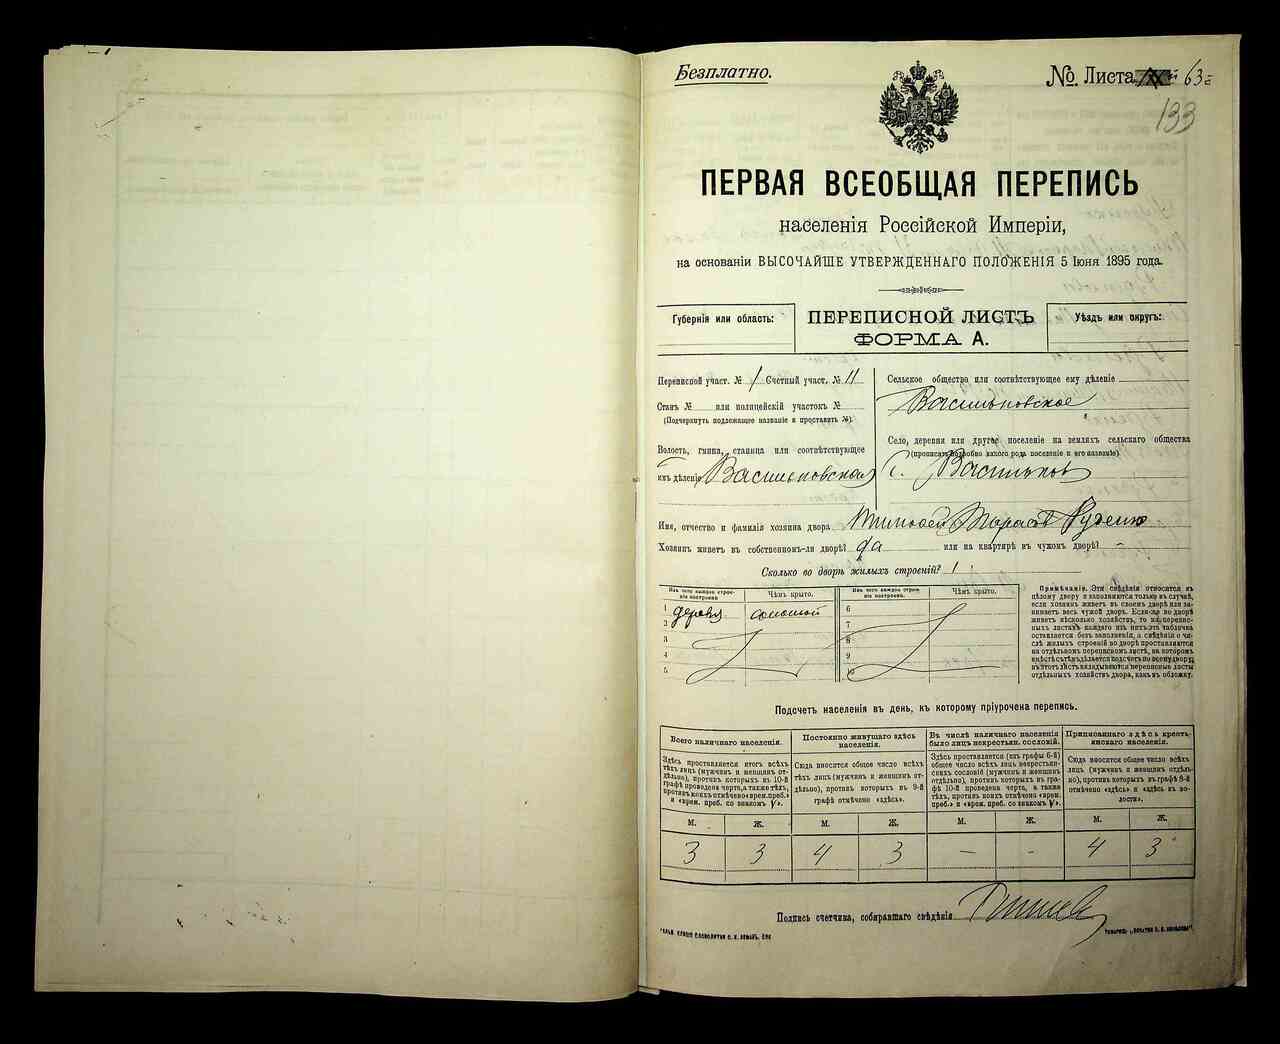 Безплатно.
№ Листа 63
133
ПЕРВАЯ ВСЕОБЩАЯ ПЕРЕПИСЬ
населенія Россійской Имперіи,
на основаніи ВЫСОЧАЙШЕ УТВЕРЖДЕННАГО ПОЛОЖЕНІЯ 5 Іюня 1895 года.
Губернія или область:
ПЕРЕПИСНОЙ ЛИСТЪ
ФОРМА А.
Уѣздъ или округъ:
Переписной участ. № 1 Счетный участ. № 11
Станъ № или полицейскій участокъ №
(Подчеркнуть подлежащее названіе и проставить №).
Волость, гмина, станица или соотвѣтствующее
имъ дѣленіе Васильковская
Сельское общество или соотвѣтствующее ему дѣленіе
Васильковское
Село, деревня или другое поселеніе на земляхъ сельскаго общества
(прописать подробно какого рода поселеніе и его названіе)
с. Васильков
Имя, отчество и фамилія хозяина двора Тимофей Тарасов Руденко
Хозяинъ живетъ въ собственномъ-ли дворѣ? да или на квартирѣ въ чужомъ дворѣ? -
Сколько во дворѣ жилыхъ строеній? 1
Изъ чего каждое строеніе построено. Чѣмъ крыто.
1 дерева соломой
2
3
4
5
Изъ чего каждое строеніе построено. Чѣмъ крыто.
6
7
8
9
10
Примѣчаніе. Эти свѣдѣнія относятся къ
цѣлому двору и заполняются только въ случаѣ,
если хозяинъ живетъ въ своемъ дворѣ или занимаетъ
весь чужой дворъ. Если-же во дворѣ
живетъ нѣсколько хозяйствъ, то на переписныхъ
листахъ каждаго изъ нихъ эта табличка
оставляется безъ заполненія, а свѣдѣнія о числѣ
жилыхъ строеній во дворѣ проставляются
на отдѣльномъ переписномъ листѣ, на которомъ
вмѣстѣ съ тѣмъ дѣлается подсчетъ по всему двору;
въ этотъ листъ вкладываются переписные листы
отдѣльныхъ хозяйствъ двора, какъ въ обложку.
Подсчетъ населенія въ день, къ которому пріурочена перепись.
Всего наличнаго населенія.
Здѣсь проставляется итогъ всѣхъ
тѣхъ лицъ (мужчинъ и женщинъ отдѣльно),
противъ которыхъ въ 10-й
графѣ проведена черта, а также тѣхъ,
противъ коихъ отмѣчено «врем. преб.»
и «врем. преб. со знакомъ V».
Постоянно живущаго здѣсь
населенія.
Сюда вносится общее число всѣхъ
тѣхъ лицъ (мужчинъ и женщинъ отдѣльно),
противъ которыхъ въ 9-й
графѣ отмѣчено «здѣсь».
Въ числѣ наличнаго населенія
было лицъ некрестьян. сословій.
Здѣсь проставляется (изъ графы 6-й)
общее число всѣхъ лицъ некрестьянскихъ
сословій (мужчинъ и женщинъ
отдѣльно), противъ которыхъ въ графѣ
10-й проведена черта, а также
тѣхъ, противъ коихъ отмѣчено «врем.
преб.» и «врем. преб. со знакомъ V».
Приписаннаго здѣсь крестьянскаго
населенія.
Сюда вносится общее число всѣхъ
лицъ (мужчинъ и женщинъ отдѣльно),
противъ которыхъ въ графѣ 8-й
отмѣчено «здѣсь» и «здѣсь въ волости».
М. Ж. М. Ж. М. Ж. М. Ж.
3 3 4 3 - - 4 3
Подпись счетчика, собиравшаго свѣдѣнія